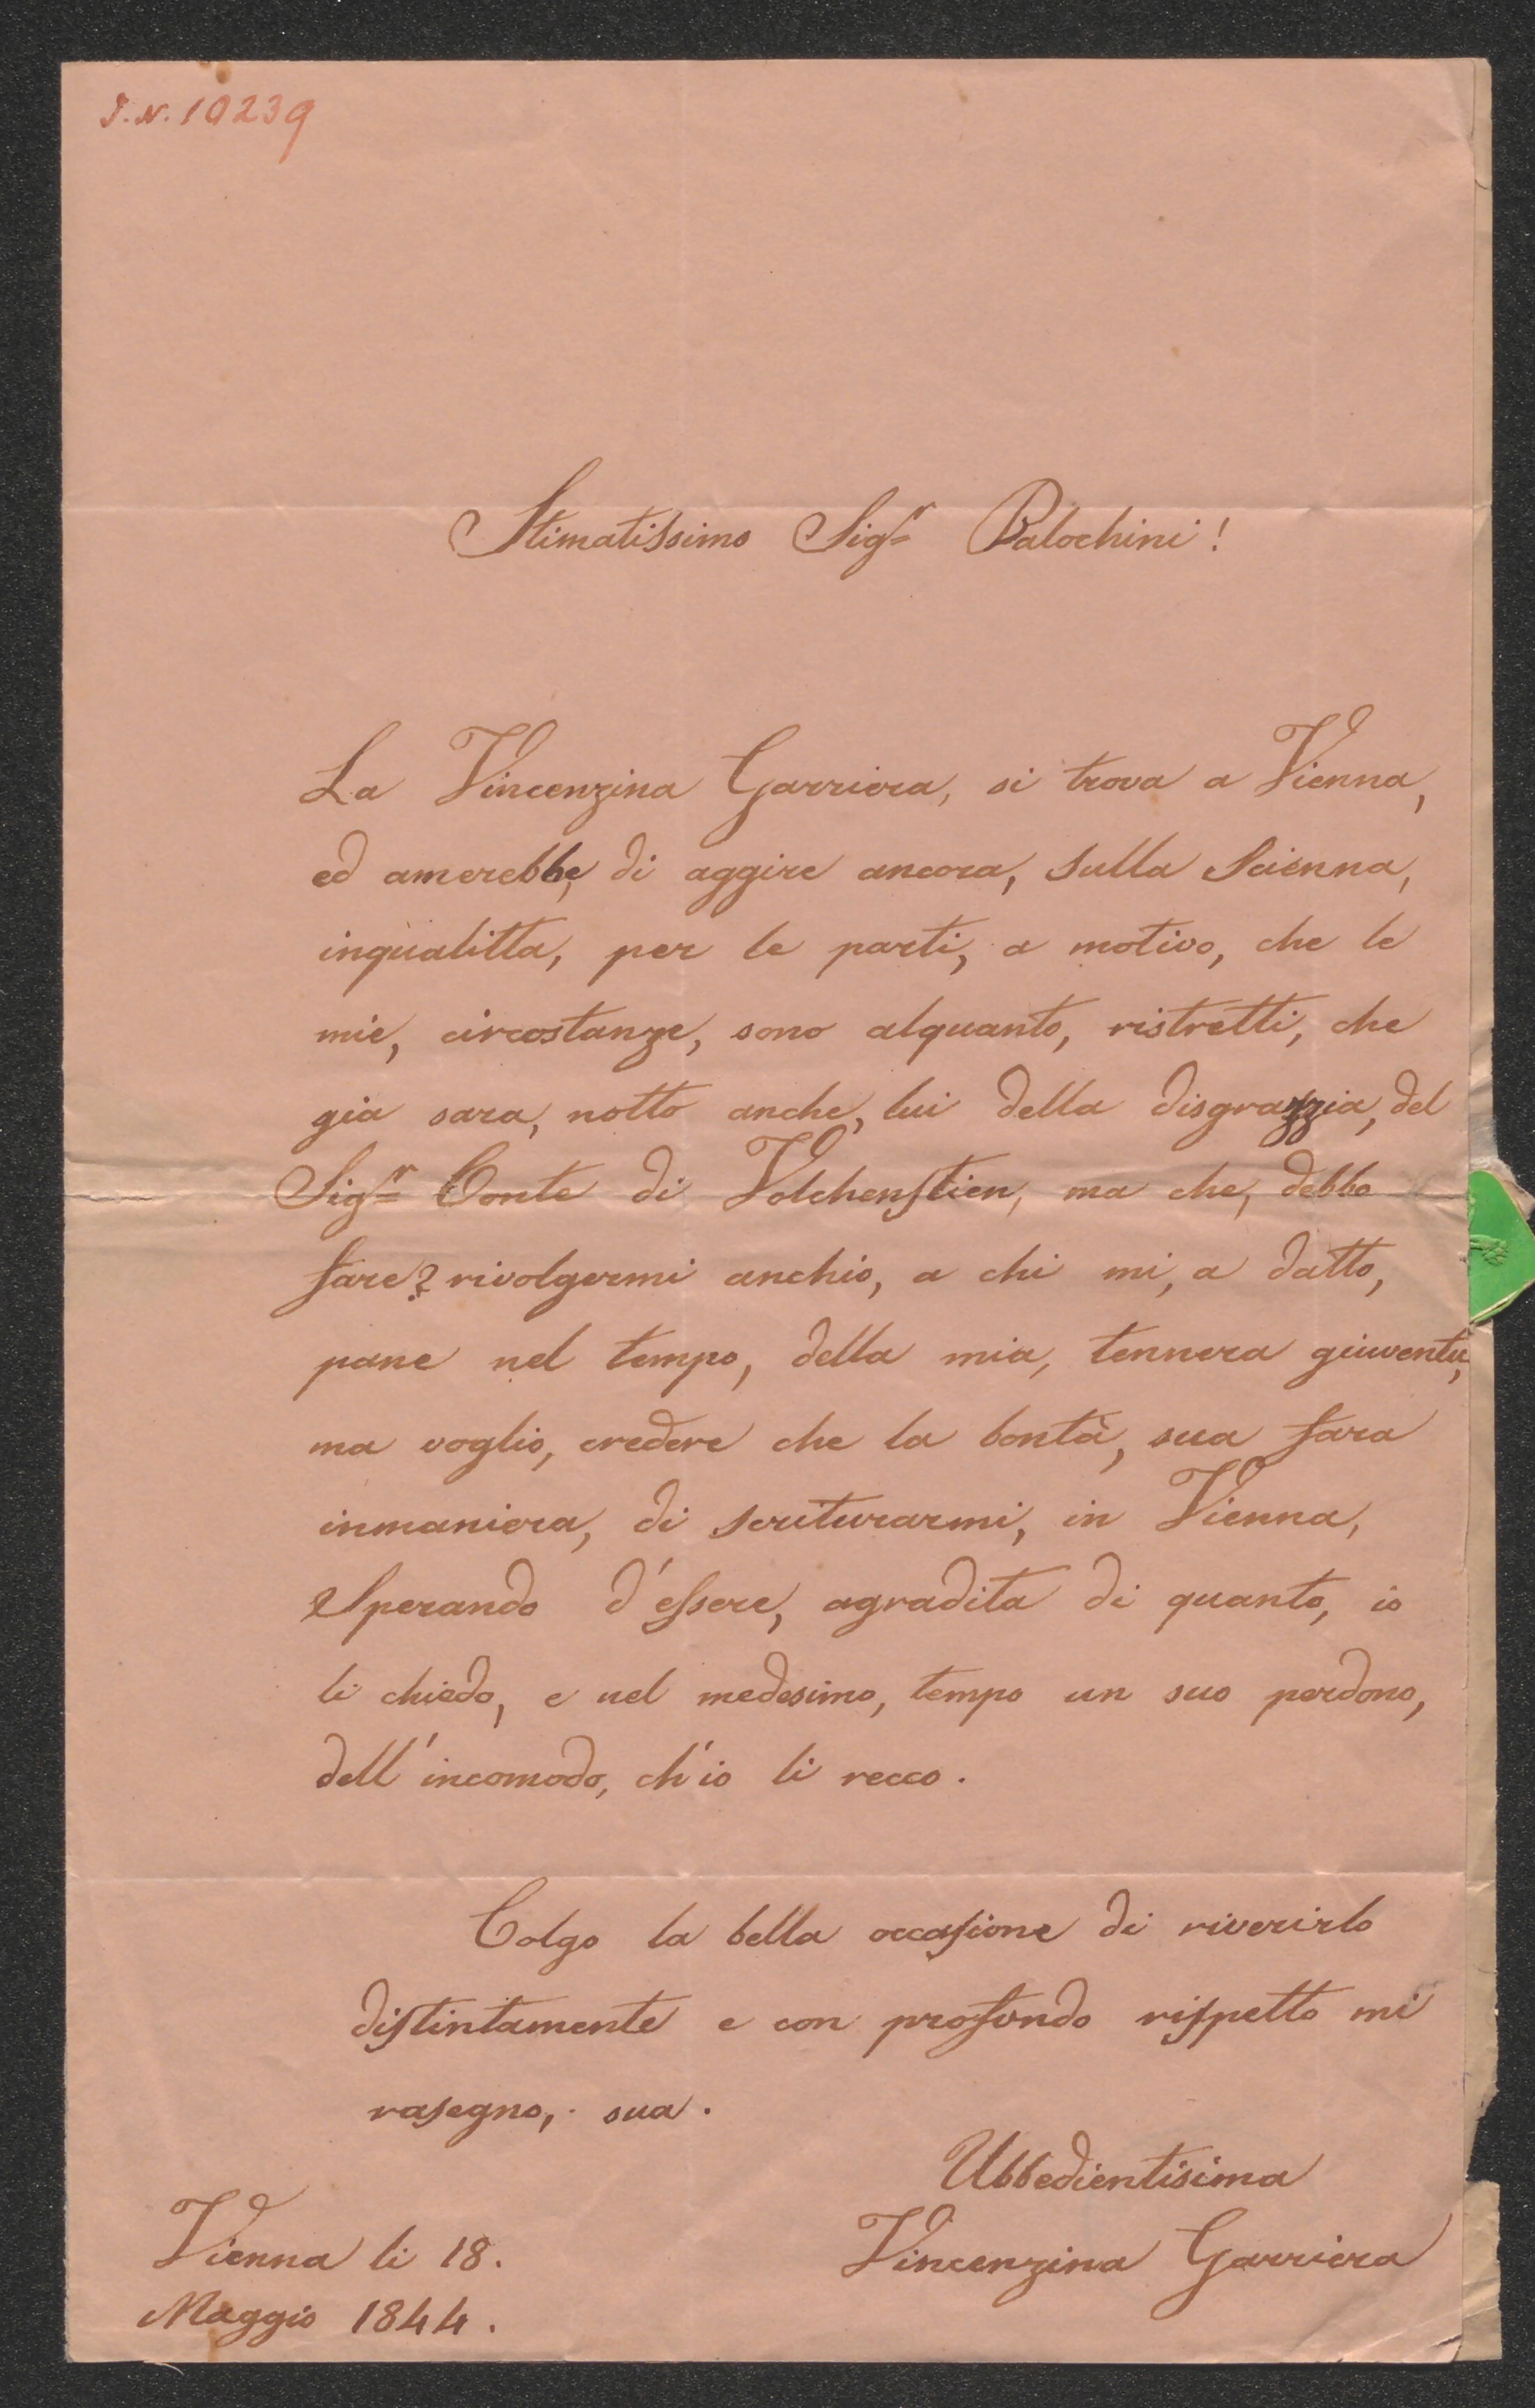 J. N. 10239
Stimatissimo Sigr Balochini!
La Vincenzina Garriera, si trova a Vienna,
ed amerebbe, di aggire ancora, sulla Scienna,
inqualitta, per le parti, a motivo, che le
mie, circostanze, sono alquanto, ristretti, che
gia sara, notto anche, lui della disgrazzia, del
Sigr Conte di Volchenstien, ma che, debbo
fare? rivolgermi anchio, a chi mi, a datto,
pane nel tempo, della mia, tennera giuventu,
ma voglio, credere che la bontà, sua fara
inmaniera, di scriturarmi, in Vienna,
Sperando d'essere, agradita di quanto, io
li chiedo, e nel medesimo, tempo un suo perdono,
dell'incomodo, ch'io li recco.
Colgo la bella occasione di riverirlo
distintamente e con profondo rispetto mi
rasegno, sua.
Ubbedientisima
Vincenzina Garriera
Vienna li 18.
Maggio 1844.